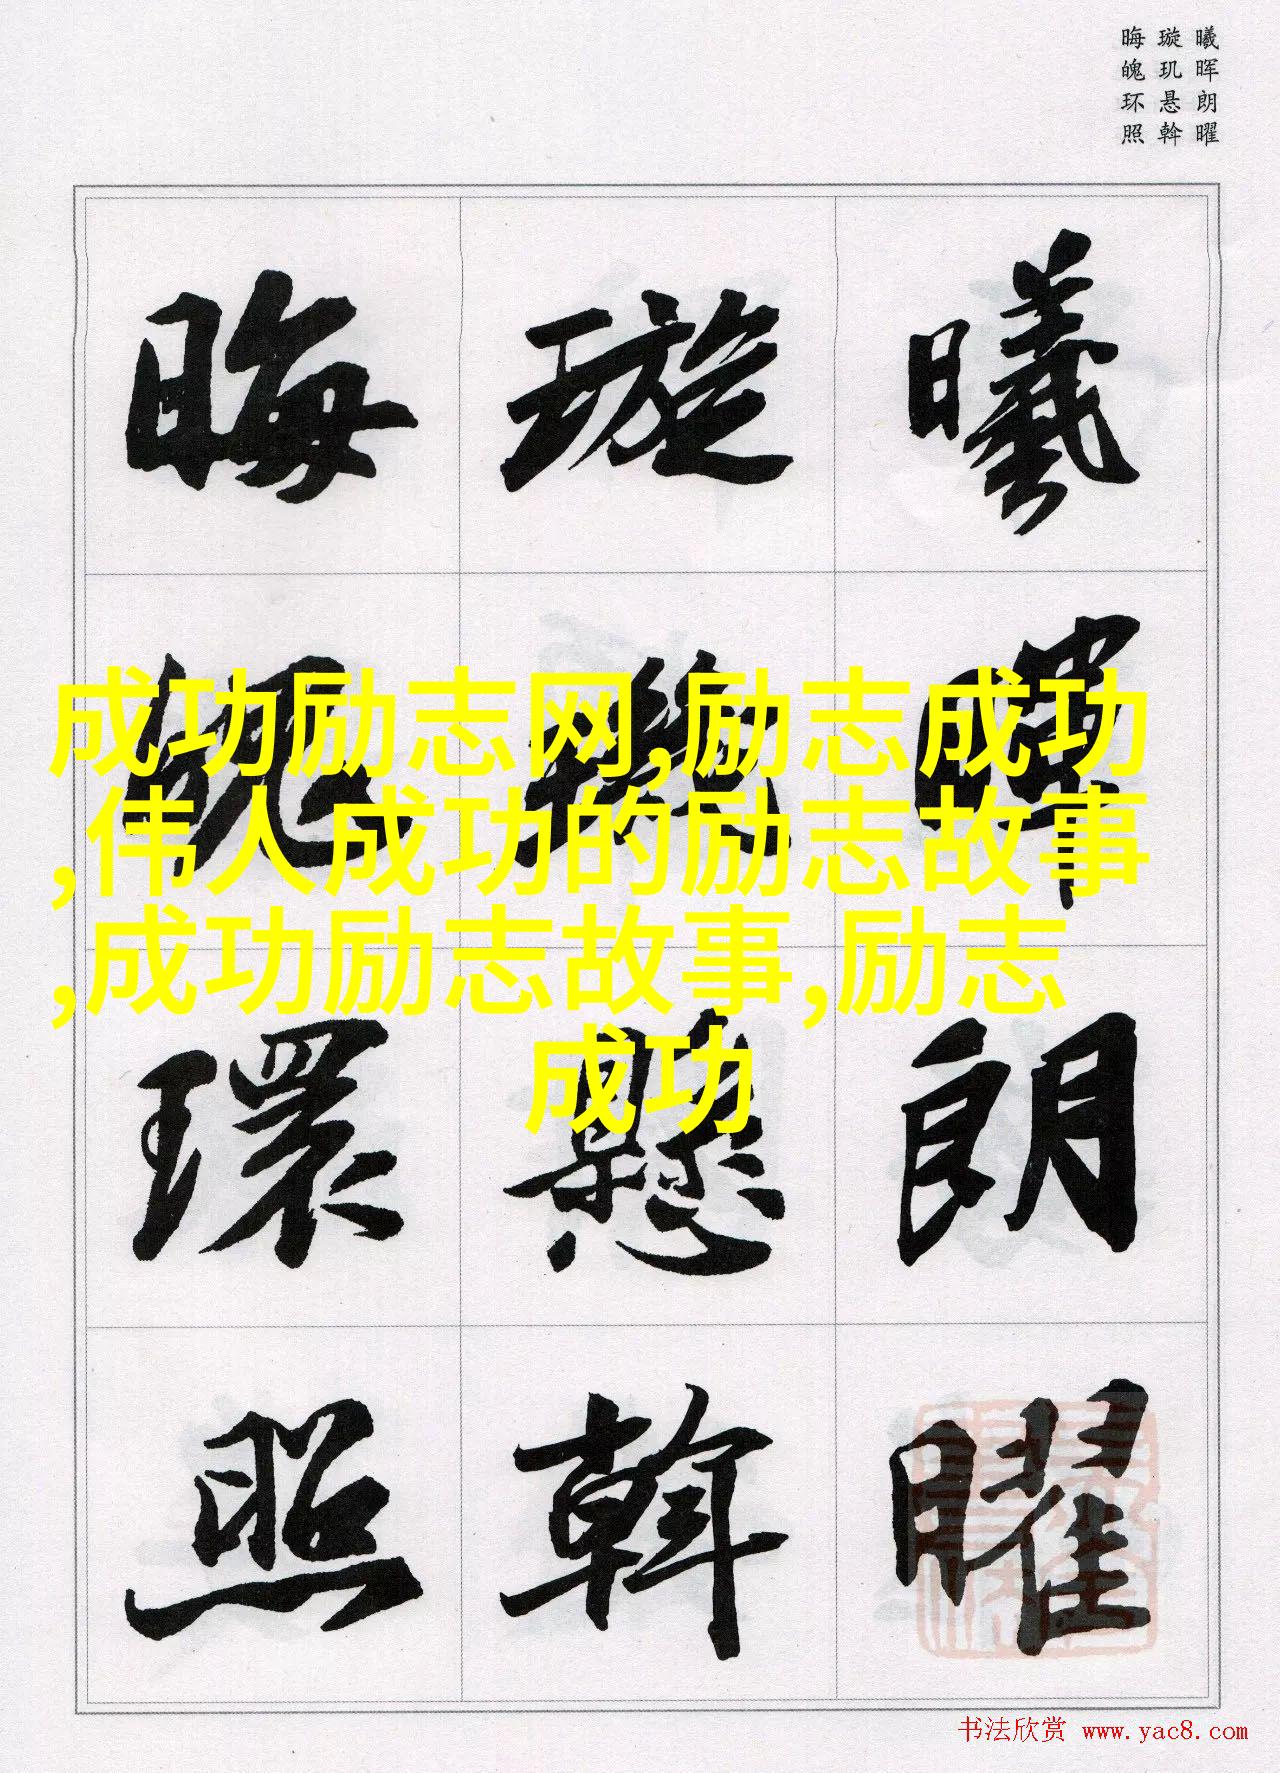 曦晖朗曜
璇玑悬斡
晦魄环照
曦暉朗曜
璇璣懸斡
晦魄環照
成功励志网,励志成功
,伟人成功的励志故事
,成功励志故事,励志
成功
书法欣赏 www.yac8.com